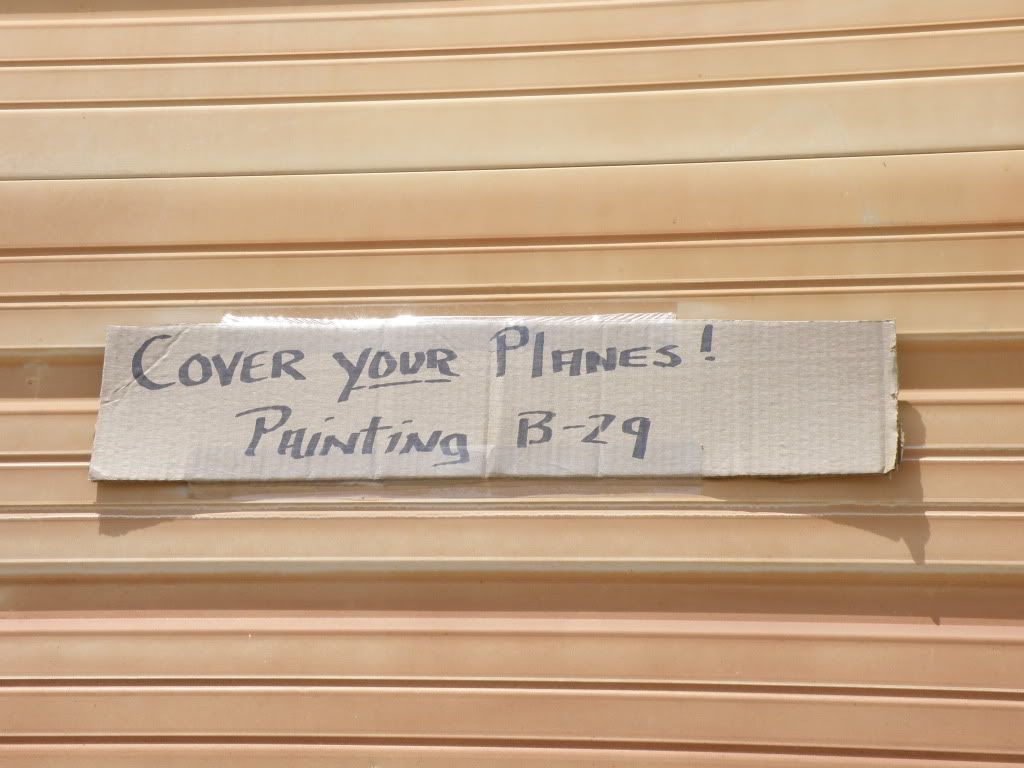 COVER YOUR PLANES!
PAINTING B-29